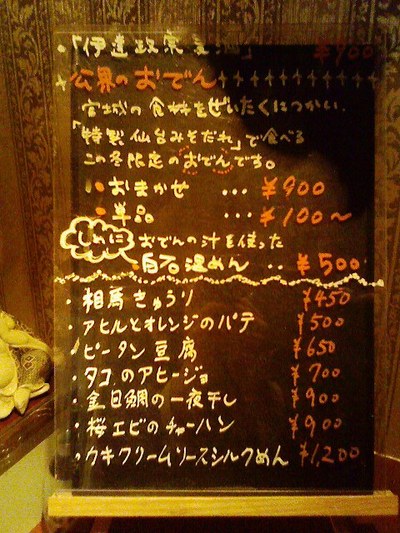 ・「伊達政宗麦酒」 ¥900
公界のおでん
宮城の食材をぜいたくにつかい、
「特製仙台みそだれ」で食べる
この冬限定のおでんです。
おまかせ … ¥900
単品 … ¥100〜
しめに おでんの汁を使った
白石温めん ‥ ¥500
・相馬きゅうり ¥450
・アヒルとオレンジのパテ ¥500
・ピータン豆腐 ¥650
・タコのアヒージョ ¥700
・金目鯛の一夜干し ¥900
・桜エビのチャーハン ¥900
・カキクリームソースシルクめん ¥1,200